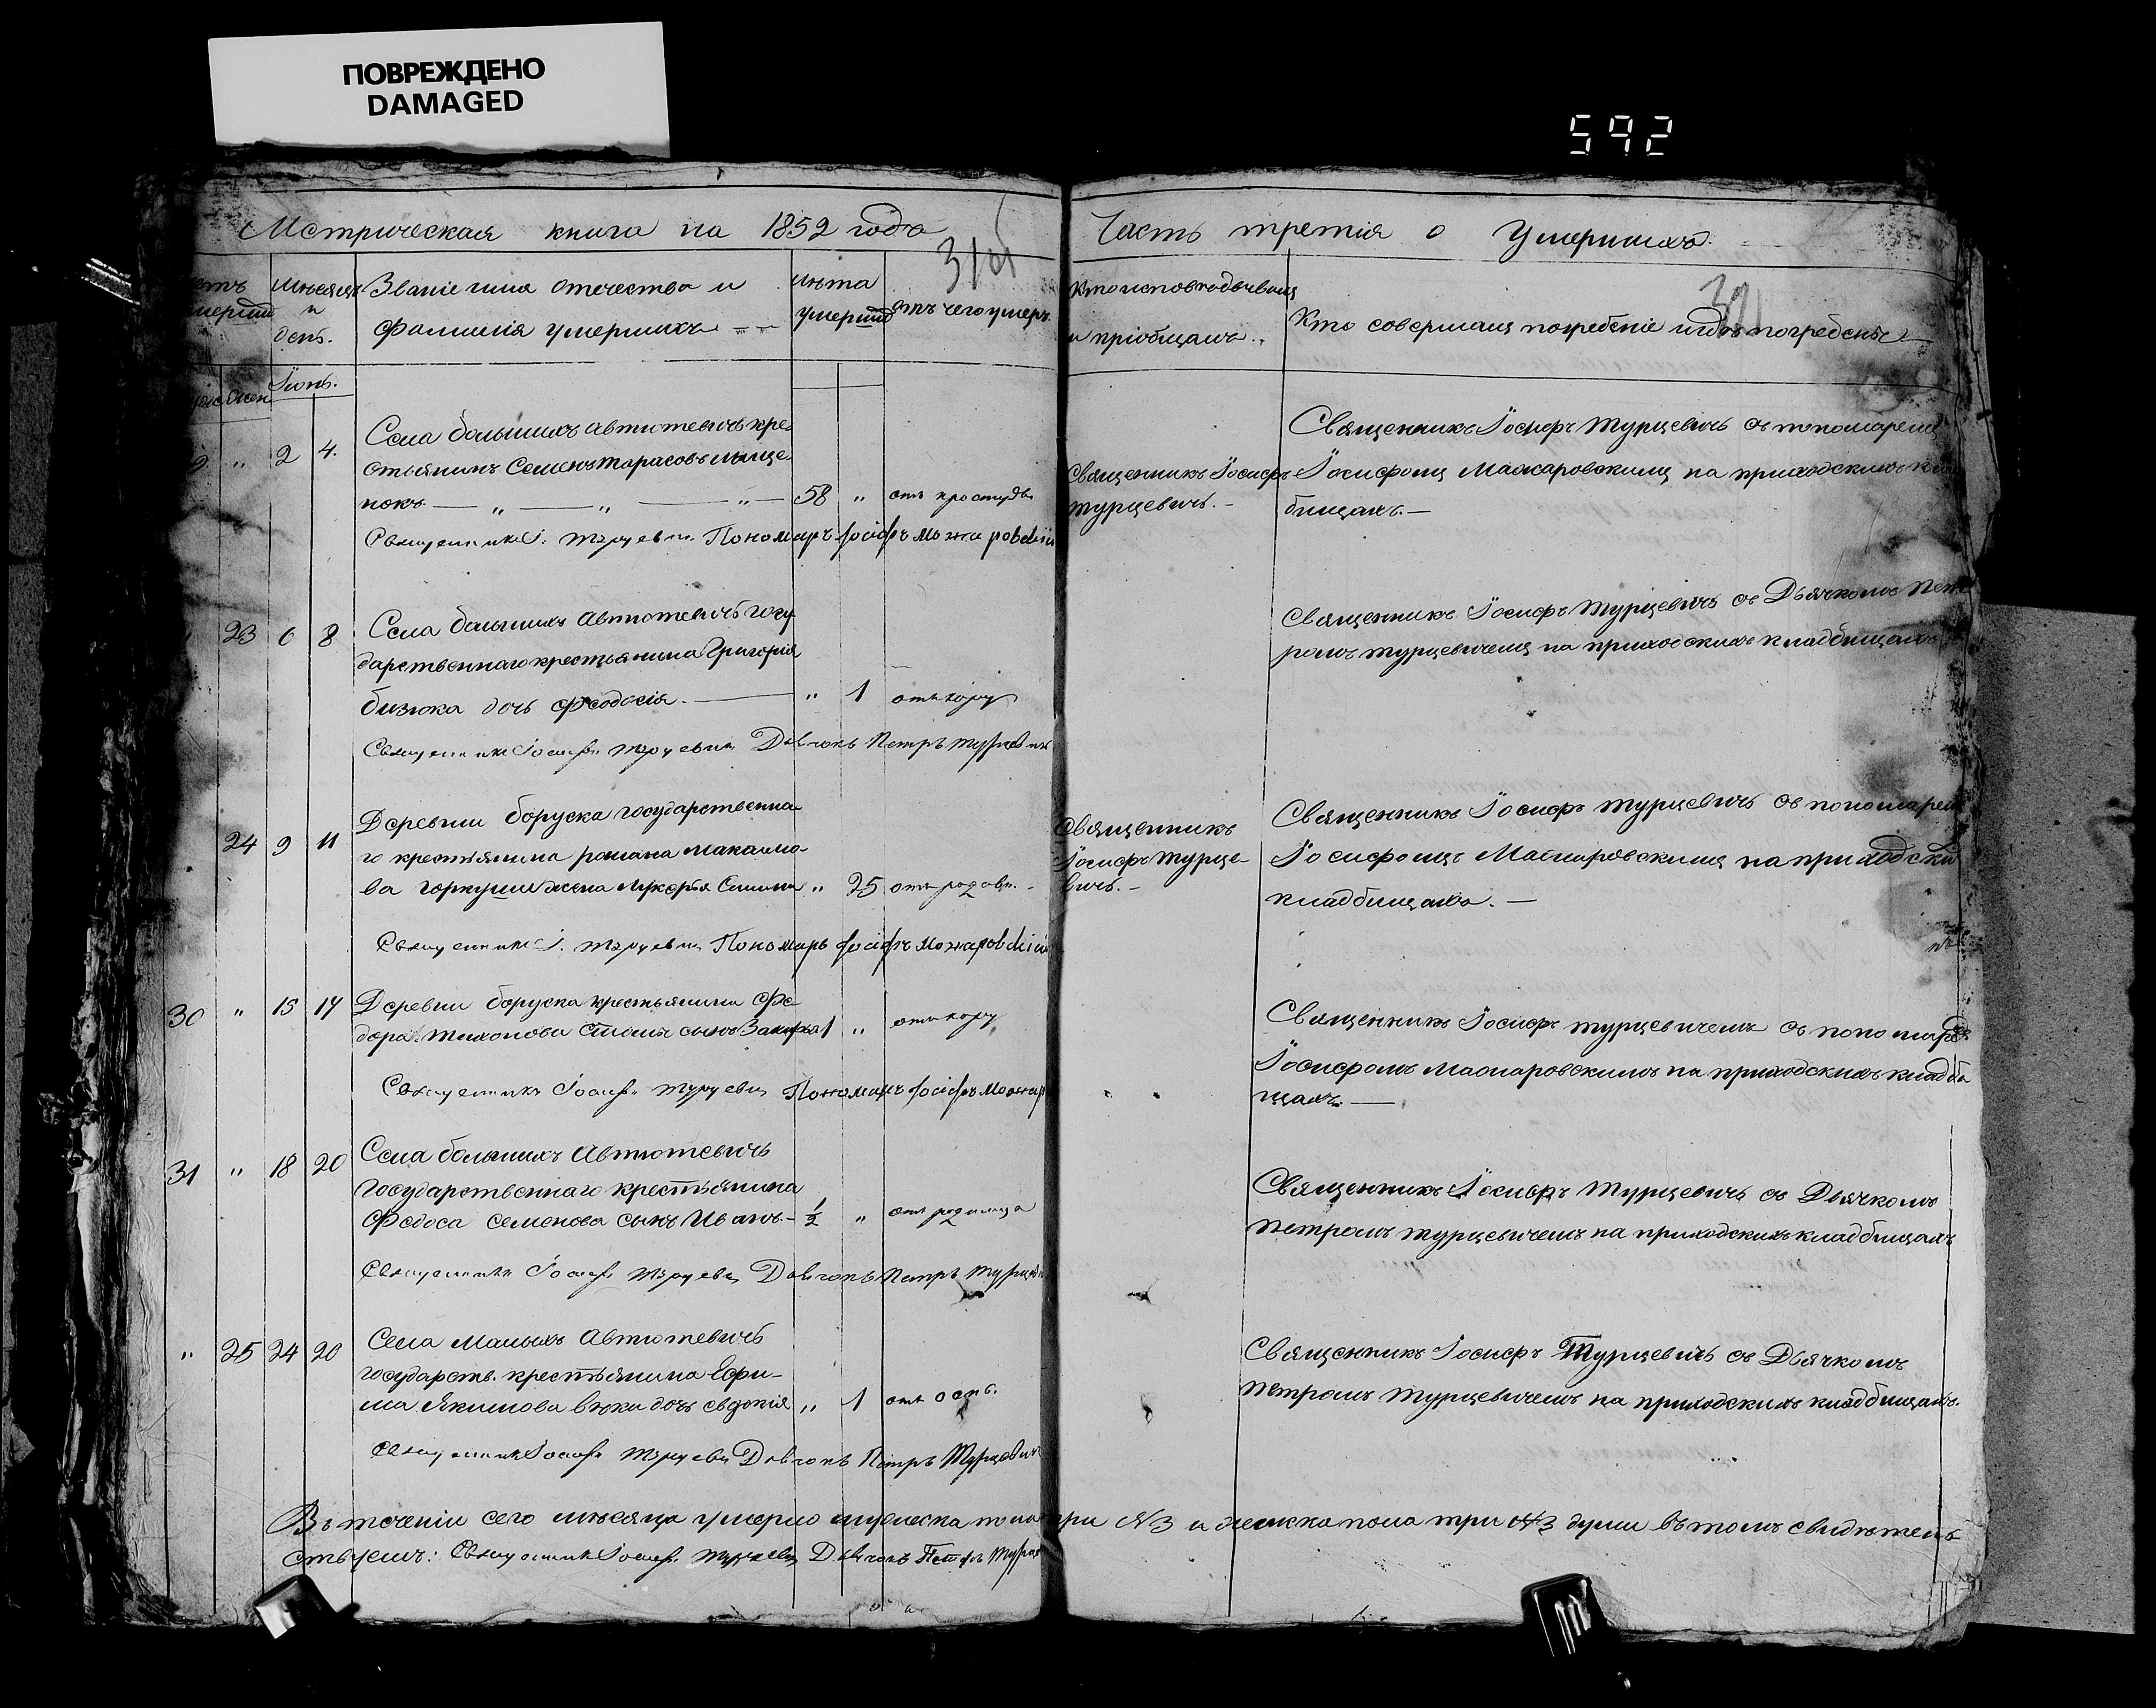 ПОВРЕЖДЕНО
DAMAGED
592
Метрическая книга на 1852 годъ
Часть третія о Умершихъ.
Мѣсяцъ
и
день.
Званіе имя отечество и
фамилія умершихъ
Лѣта
умершихъ
отъ чего умеръ
Кто исповѣдывалъ
и пріобщалъ.
Кто совершалъ погребеніе и гдѣ погребены
Іюнь.
" 2 4.
Села большихъ Автютевичъ кре-
стьянинъ Семенъ Тарасовъ
58 " отъ простуды
Священникъ І. Турцевичъ Пономарь Іосифъ Можаровскій
Священникъ Іосифъ
Турцевичъ.
Священникъ Іосифъ Турцевичъ съ пономаремъ
Іосифомъ Мажаровскимъ на приходскихъ клад
бищахъ.
23 6 8
Села большихъ Автютевичъ госу
дарственнаго крестьянина Григорія
бизюка дочь Феодосія.
" 1 отъ кору
Священникъ Іосифъ Турцевичъ Дьячокъ Петръ Турцевичъ
Священникъ Іосифъ Турцевичъ съ Дьячкомъ Пет
ромъ Турцевичемъ на приходскихъ кладбищахъ
24 9 11
Деревни боруска государственна-
го крестьянина романа Макаимо-
ва горкуши жена Лукерья
" 25 отъ родовъ.
Священникъ І. Турцевичъ Пономарь Іосифъ Можаровскій
Священникъ
Іосифъ Турце-
вичъ.
Священникъ Іосифъ Турцевичъ съ пономаремъ
Іосифомъ Мажаровскимъ на приходски
кладбищахъ.
30 " 15 17
Деревни боруска крестьянина Фе-
дора Тихонова сынъ Захарья
1 " отъ кору
Священникъ Іосифъ Турцевичъ Пономарь Іосифъ Можар
Священникъ Іосифъ Турцевичемъ съ пономаре
Іосифомъ Мажаровскимъ на приходскихъ кладби
щахъ.
31 " 18 20
Села большихъ Автютевичъ
Государственнаго крестьянина
Федоса Семенова сынъ Иванъ
1/2 " отъ родимца
Священникъ Іосифъ Турцевичъ Дьячокъ Петръ Турцеви
Священникъ Іосифъ Турцевичъ съ Дьячкомъ
Петромъ Турцевичемъ на приходскихъ кладбищахъ
" 25 24 20
Села Малыхъ Автютевичъ
государств. крестьянина Ефи-
ма Якимова дочь Евдокія
" 1 отъ оспы.
Священникъ Іосифъ Турцевичъ Дьячокъ Петръ Турцевичъ
Священникъ Іосифъ Турцевичъ съ Дьячкомъ
Петромъ Турцевичемъ на приходскихъ кладбищахъ.
Въ теченіи сего мѣсяца умерло мужеска пола три №3 и женска пола три №3 души въ томъ свидѣтель
ствуемъ: Священникъ Іосифъ Турцевичъ Дьячокъ Петръ Турцев